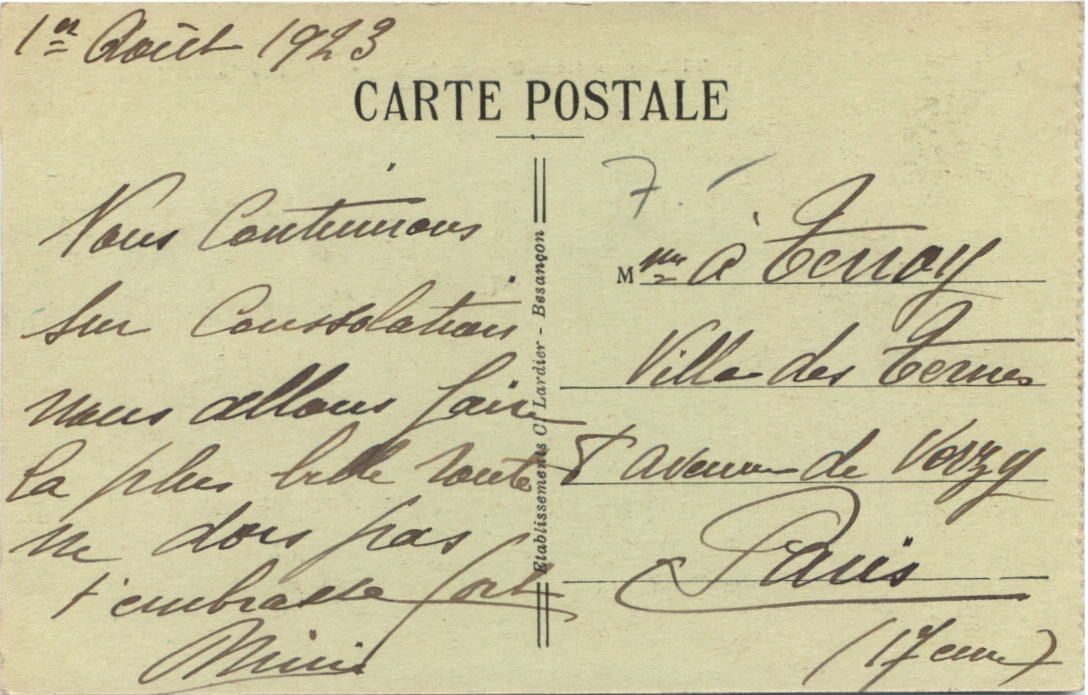 1er Août 1923
CARTE POSTALE
Nous Continuons
sur Consolation
nous allons faire
la plus belle route
ne dors pas
t'embrasse fort
Mimi
Etablissements C. Lardier - Besançon
7.
Mme à Ternoy
Villa des Ternes
8 avenue de Verzy
Paris
(17eme)